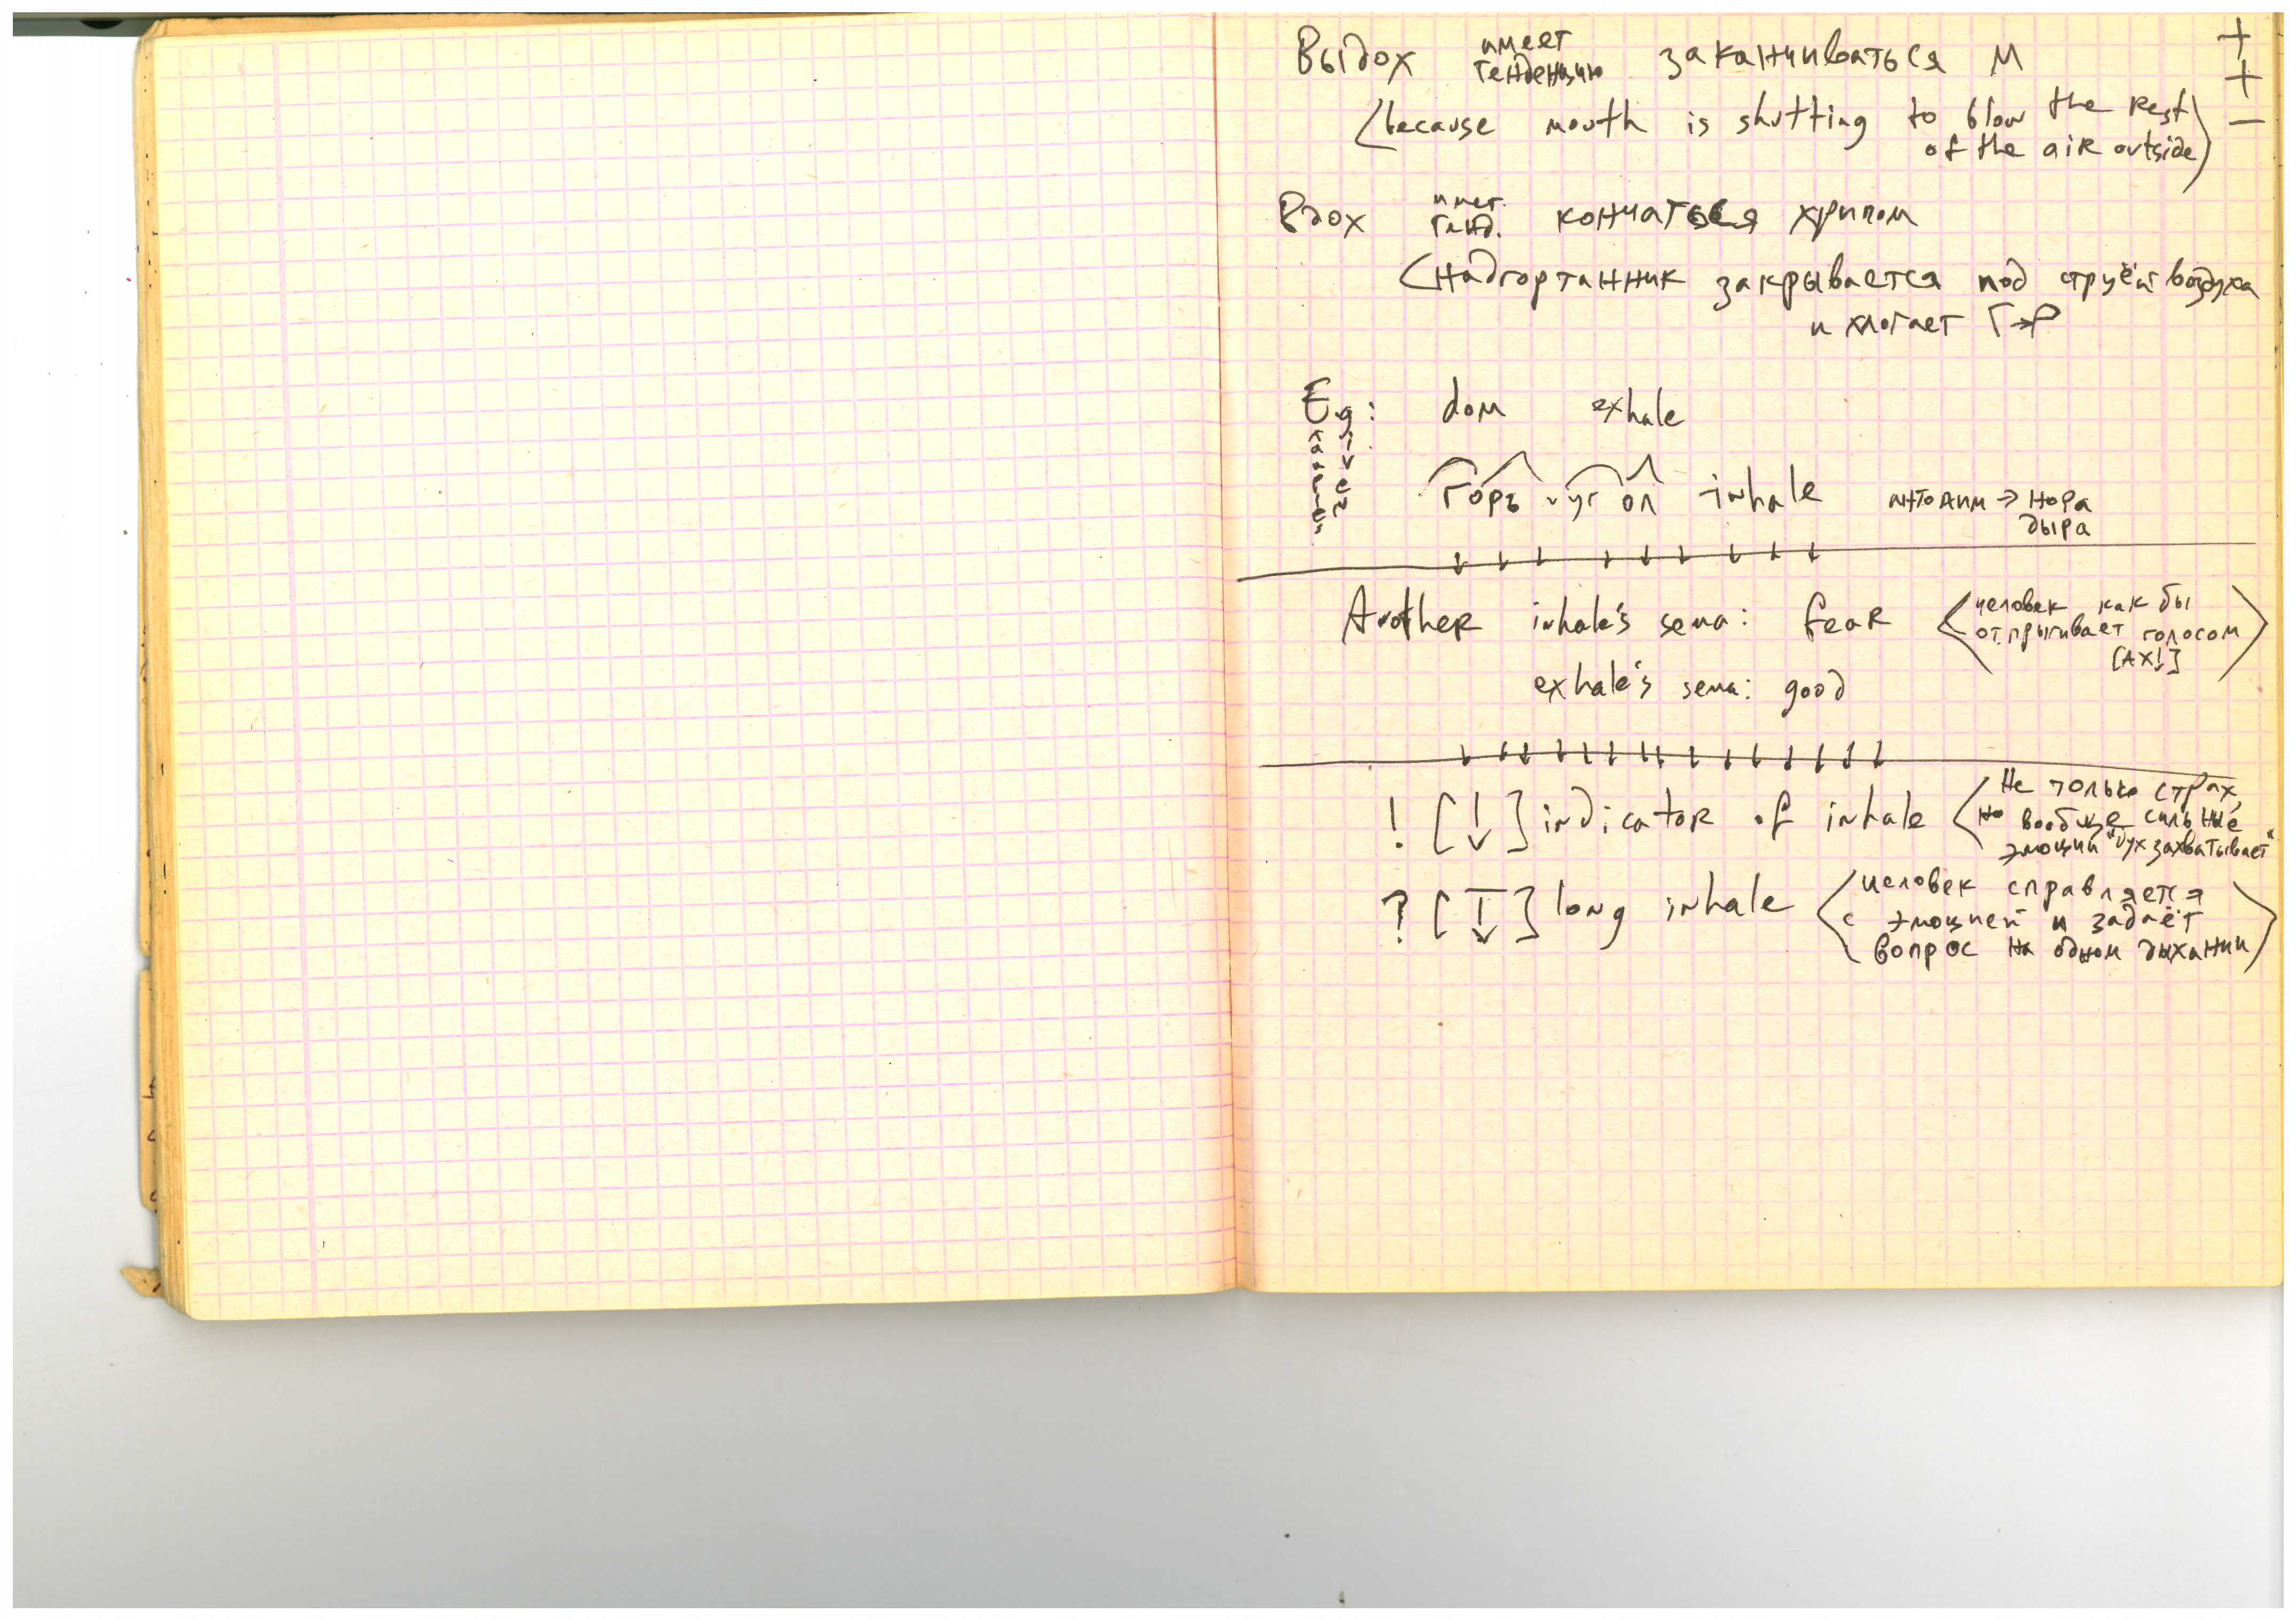 Выдох имеет тенденцию заканчиваться М
+
+
−
(because mouth is shutting to blow the Rest
of the aiR outside)
Вдох имет. тенд. кончаться хрипом
(Надгортанник закрывается под струёй воздуха
и хлопает Г→Р
Eg: dom exhale
горъ угол inhale → Нора
дыра
Another inhale's sema: feaR <человек как бы
отпрыгивает голосом
[АХ!]>
exhale's sema: good
! [↓] indicatoR of inhale <Не только страх,
но вообще сильные
эмоции "дух захватывает"
? [↧] long inhale <человек справляется
с эмоцией и задаёт
вопрос на одном дыхании>